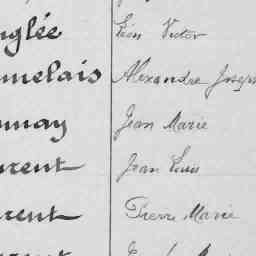 nglée Léon Victor
melais Alexandre Joseph
nnay Jean Marie
urent Jean Louis
urent Pierre Marie